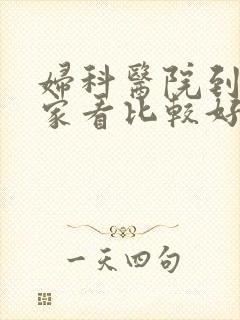 婦科醫院到
家看比較好
一天四句